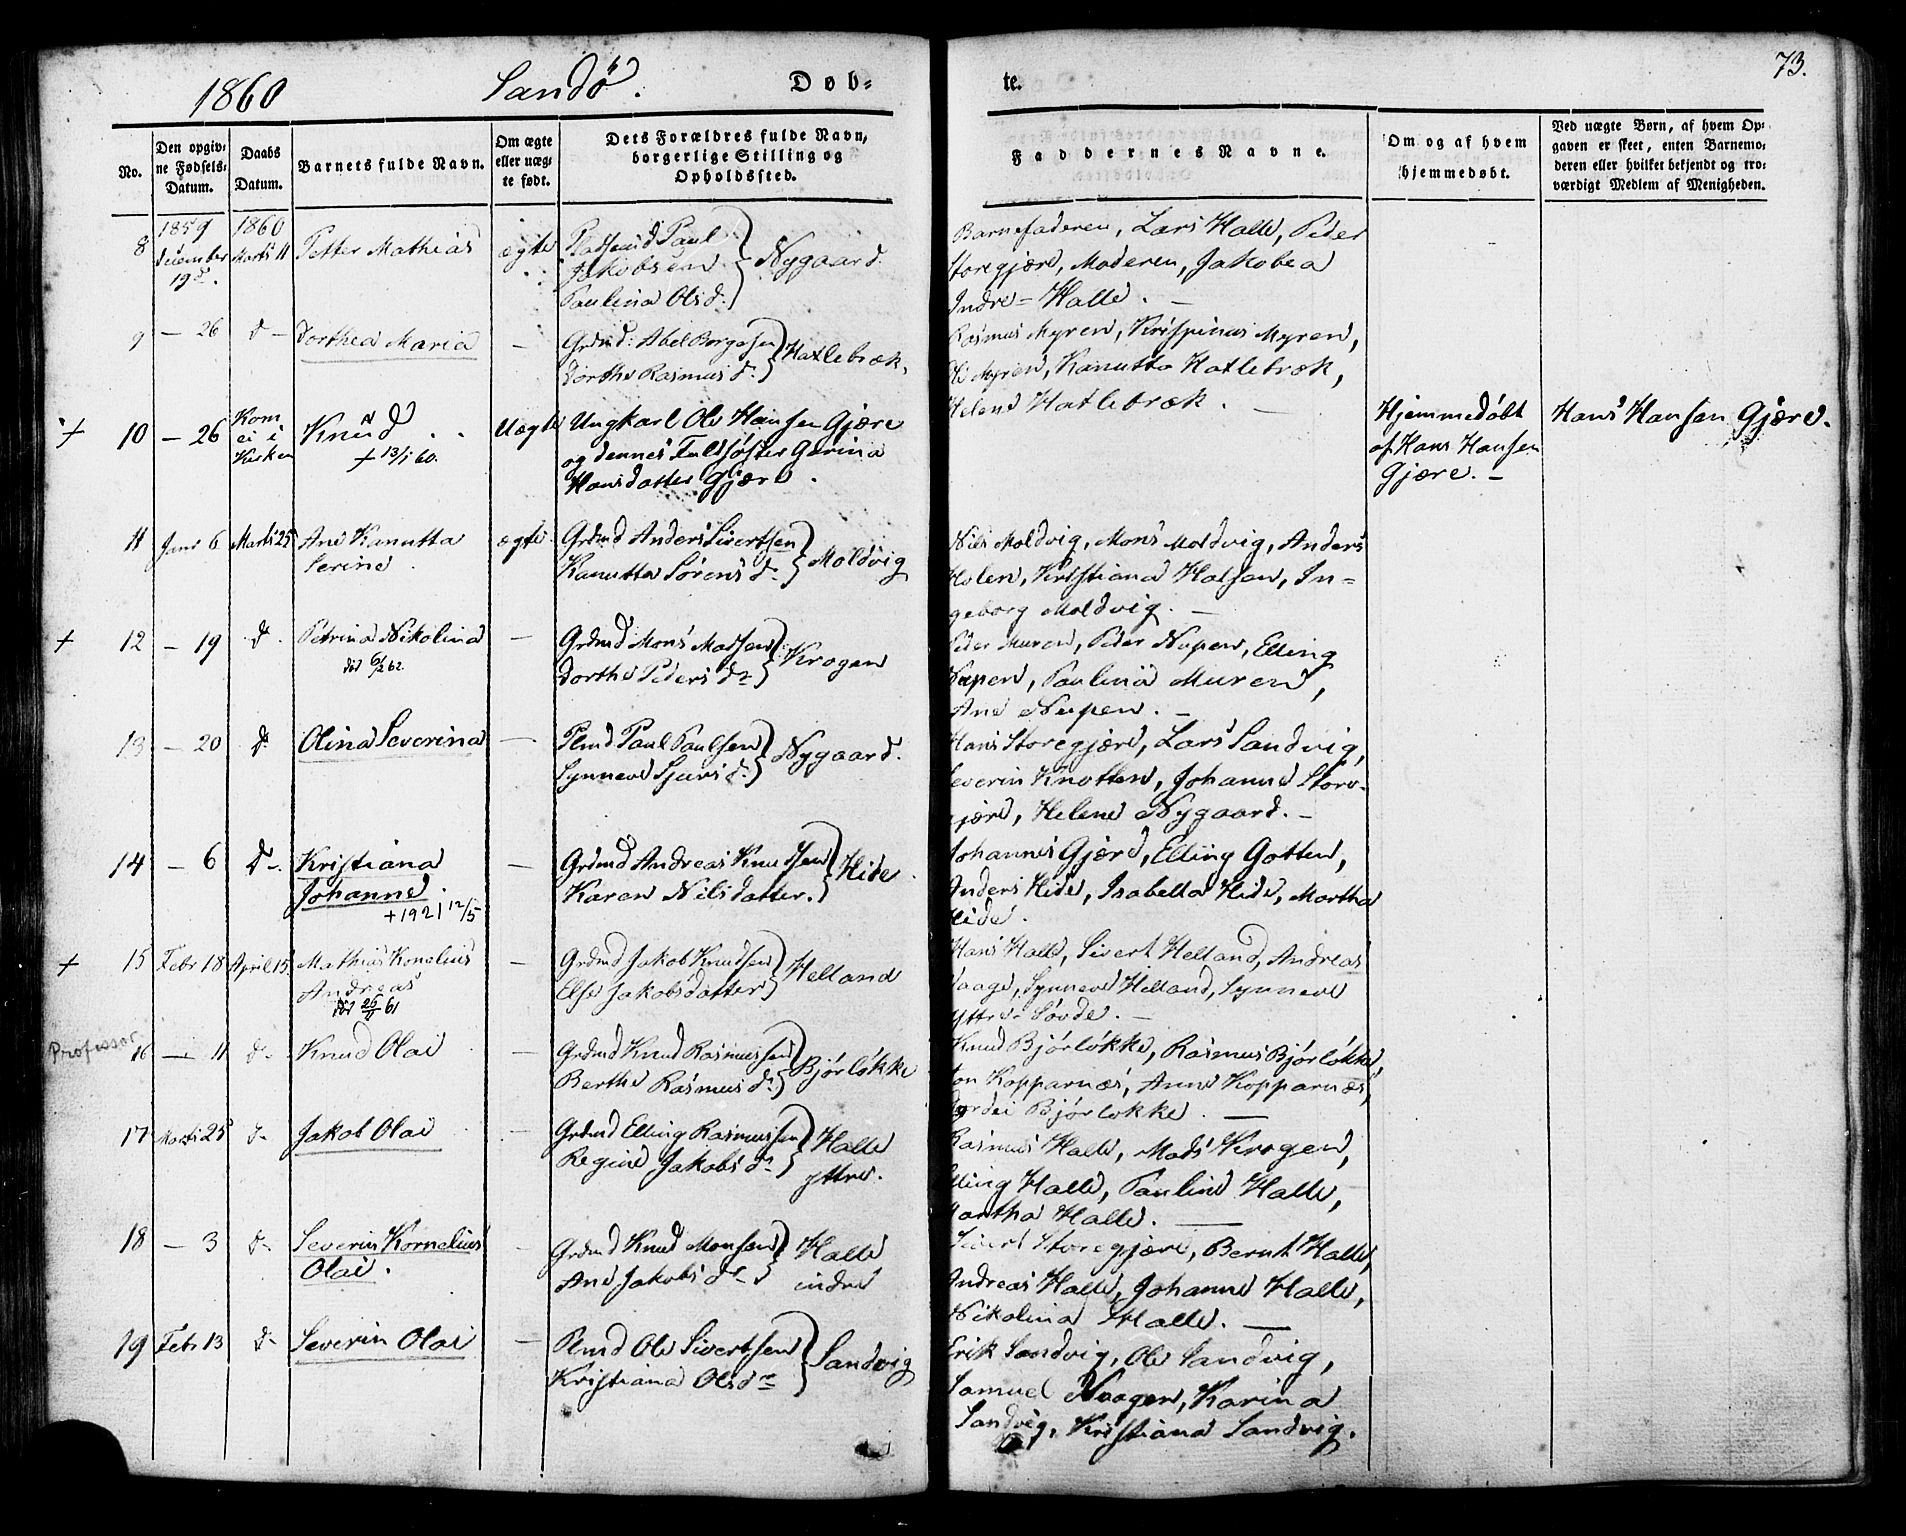 1860 Sandø. Døb-
te. 73.
No.
Den opgiv-
ne Fødsels-
Datum.
Daabs
Datum.
Barnets fulde Navn.
Om ægte
eller uæg-
te født.
Dets Forældres fulde Navn,
borgerlige Stilling og
Opholdssted.
Faddernes Navne.
Om og af hvem
hjemmedøbt.
Ved uægte Børn, af hvem Op-
gaven er skeet, enten Barnemo-
deren eller hvilket bekjendt og tro-
værdigt Medlem af Menigheden.
8
1859
December
19d.
1860
Marts 11
Petter Mathias
ægte
Pladsmd Paul
Jakobsen
Paulina Olsd.
Nygaard.
Barnefaderen, Lars Halle, Peder
Storegjære, Moderen, Jakobea
Indre-Halle. —
9 — 26 d — Dorthea Maria —
Grdmd: Abel Borgesen
Dorthe Rasmusd.
Hatlebræk.
Rasmus Myren, Krispinus Myren,
Ole Myren, Kanutta Hatlebræk,
Helene Hatlebræk. —
+ 10 — 26
Kom
ei i
Kirken
Knud
+ 13/1 60.
Uægte
Ungkarl Ole Hansen Gjære
og dennes Fuldsøster Gurina
Hansdatter Gjære.
Hjemmedøbt
af Hans Hansen
Gjære. —
Hans Hansen Gjære.
11 Janr 6 Marts 25
Ane Kanutta
Serine.
ægte
Grdmd Anders Sivertsen
Kanutta Sørensd.
Moldvig
Nils Moldvig, Mons Moldvig, Anders
Holen, Kristiana Holsen, In-
geborg Moldvig. —
+ 12 — 19 d.
Petrina Nikolina
død 6/2 62.
—
Grdmd Mons Madsen
Dorthe Pedersdr
Krogen
Peder Muren, Peder Nupen, Elling
Nupen, Paulina Muren,
Ane Nupen. —
13 — 20 d. Olina Severina —
Plmd Paul Paulsen
Synneve Sjursd.
Nygaard.
Hans Storegjære, Lars Sandvig,
Severin Knotten, Johanne Store-
gjære, Helene Nygaard. —
14 — 6 d —
Kristiana
Johanne.
+ 1921 12/5
—
Grdmd Andreas Knudsen
Karen Nilsdatter.
Hide.
Johannes Gjære, Elling Gotten,
Anders Hide, Isabella Hide, Martha
Hide.
+ 15 Febr 18 April 15.
Mathias Konelius
Andreas
død 26/11 61
—
Grdmd Jakob Knudsen
Else Jakobsdatter
Helland
Hans Halle, Sivert Helland, Andreas
Vaage, Synneve Helland, Synneve
Yttre-Søvde. —
Professor
16 — 11 d — Knud Olai —
Grdmd Knud Rasmussen
Berthe Rasmusd.
Bjørløkke
Knud Bjørløkke, Rasmus Bjørløkke,
Jon Kopparnæs, Anne Kopparnæs,
Dordei Bjørløkke. —
17 Marts 25 d — Jakob Olai —
Grdmd Elling Rasmussen
Regine Jakobsdr
Halle
yttre.
Rasmus Halle, Mads Krogen,
Elling Halle, Pauline Halle,
Martha Halle. —
18 — 3 d —
Severin Kornelius
Olai.
—
Grdmd Knud Monsen
Ane Jakobsdr
Halle
indre
Sivert Storegjære, Bernt Halle,
Andreas Halle, Johanne Halle,
Nikolina Halle. —
19 Febr 13 d — Severin Olai —
Plmd Ole Sivertsen
Kristiana Olsdr
Sandvig
Erik Sandvig, Ole Sandvig,
Samuel Haagen, Karina
Sandvig, Kristiana Sandvig.